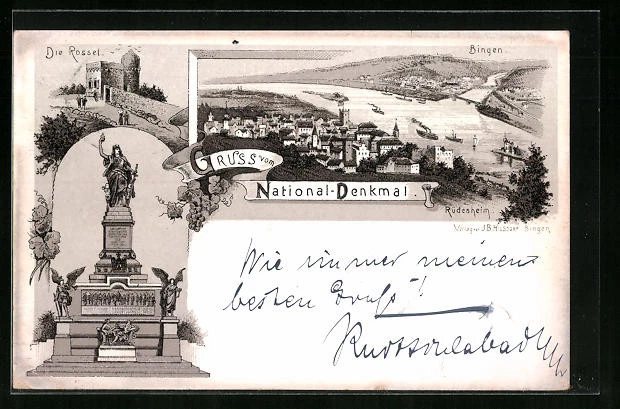 Die Rossel.
Bingen.
Gruss vom
National-Denkmal.
Rüdesheim.
Verlag v. J.B. Hilsdorf Bingen
Wie immer meinen
besten Gruß!